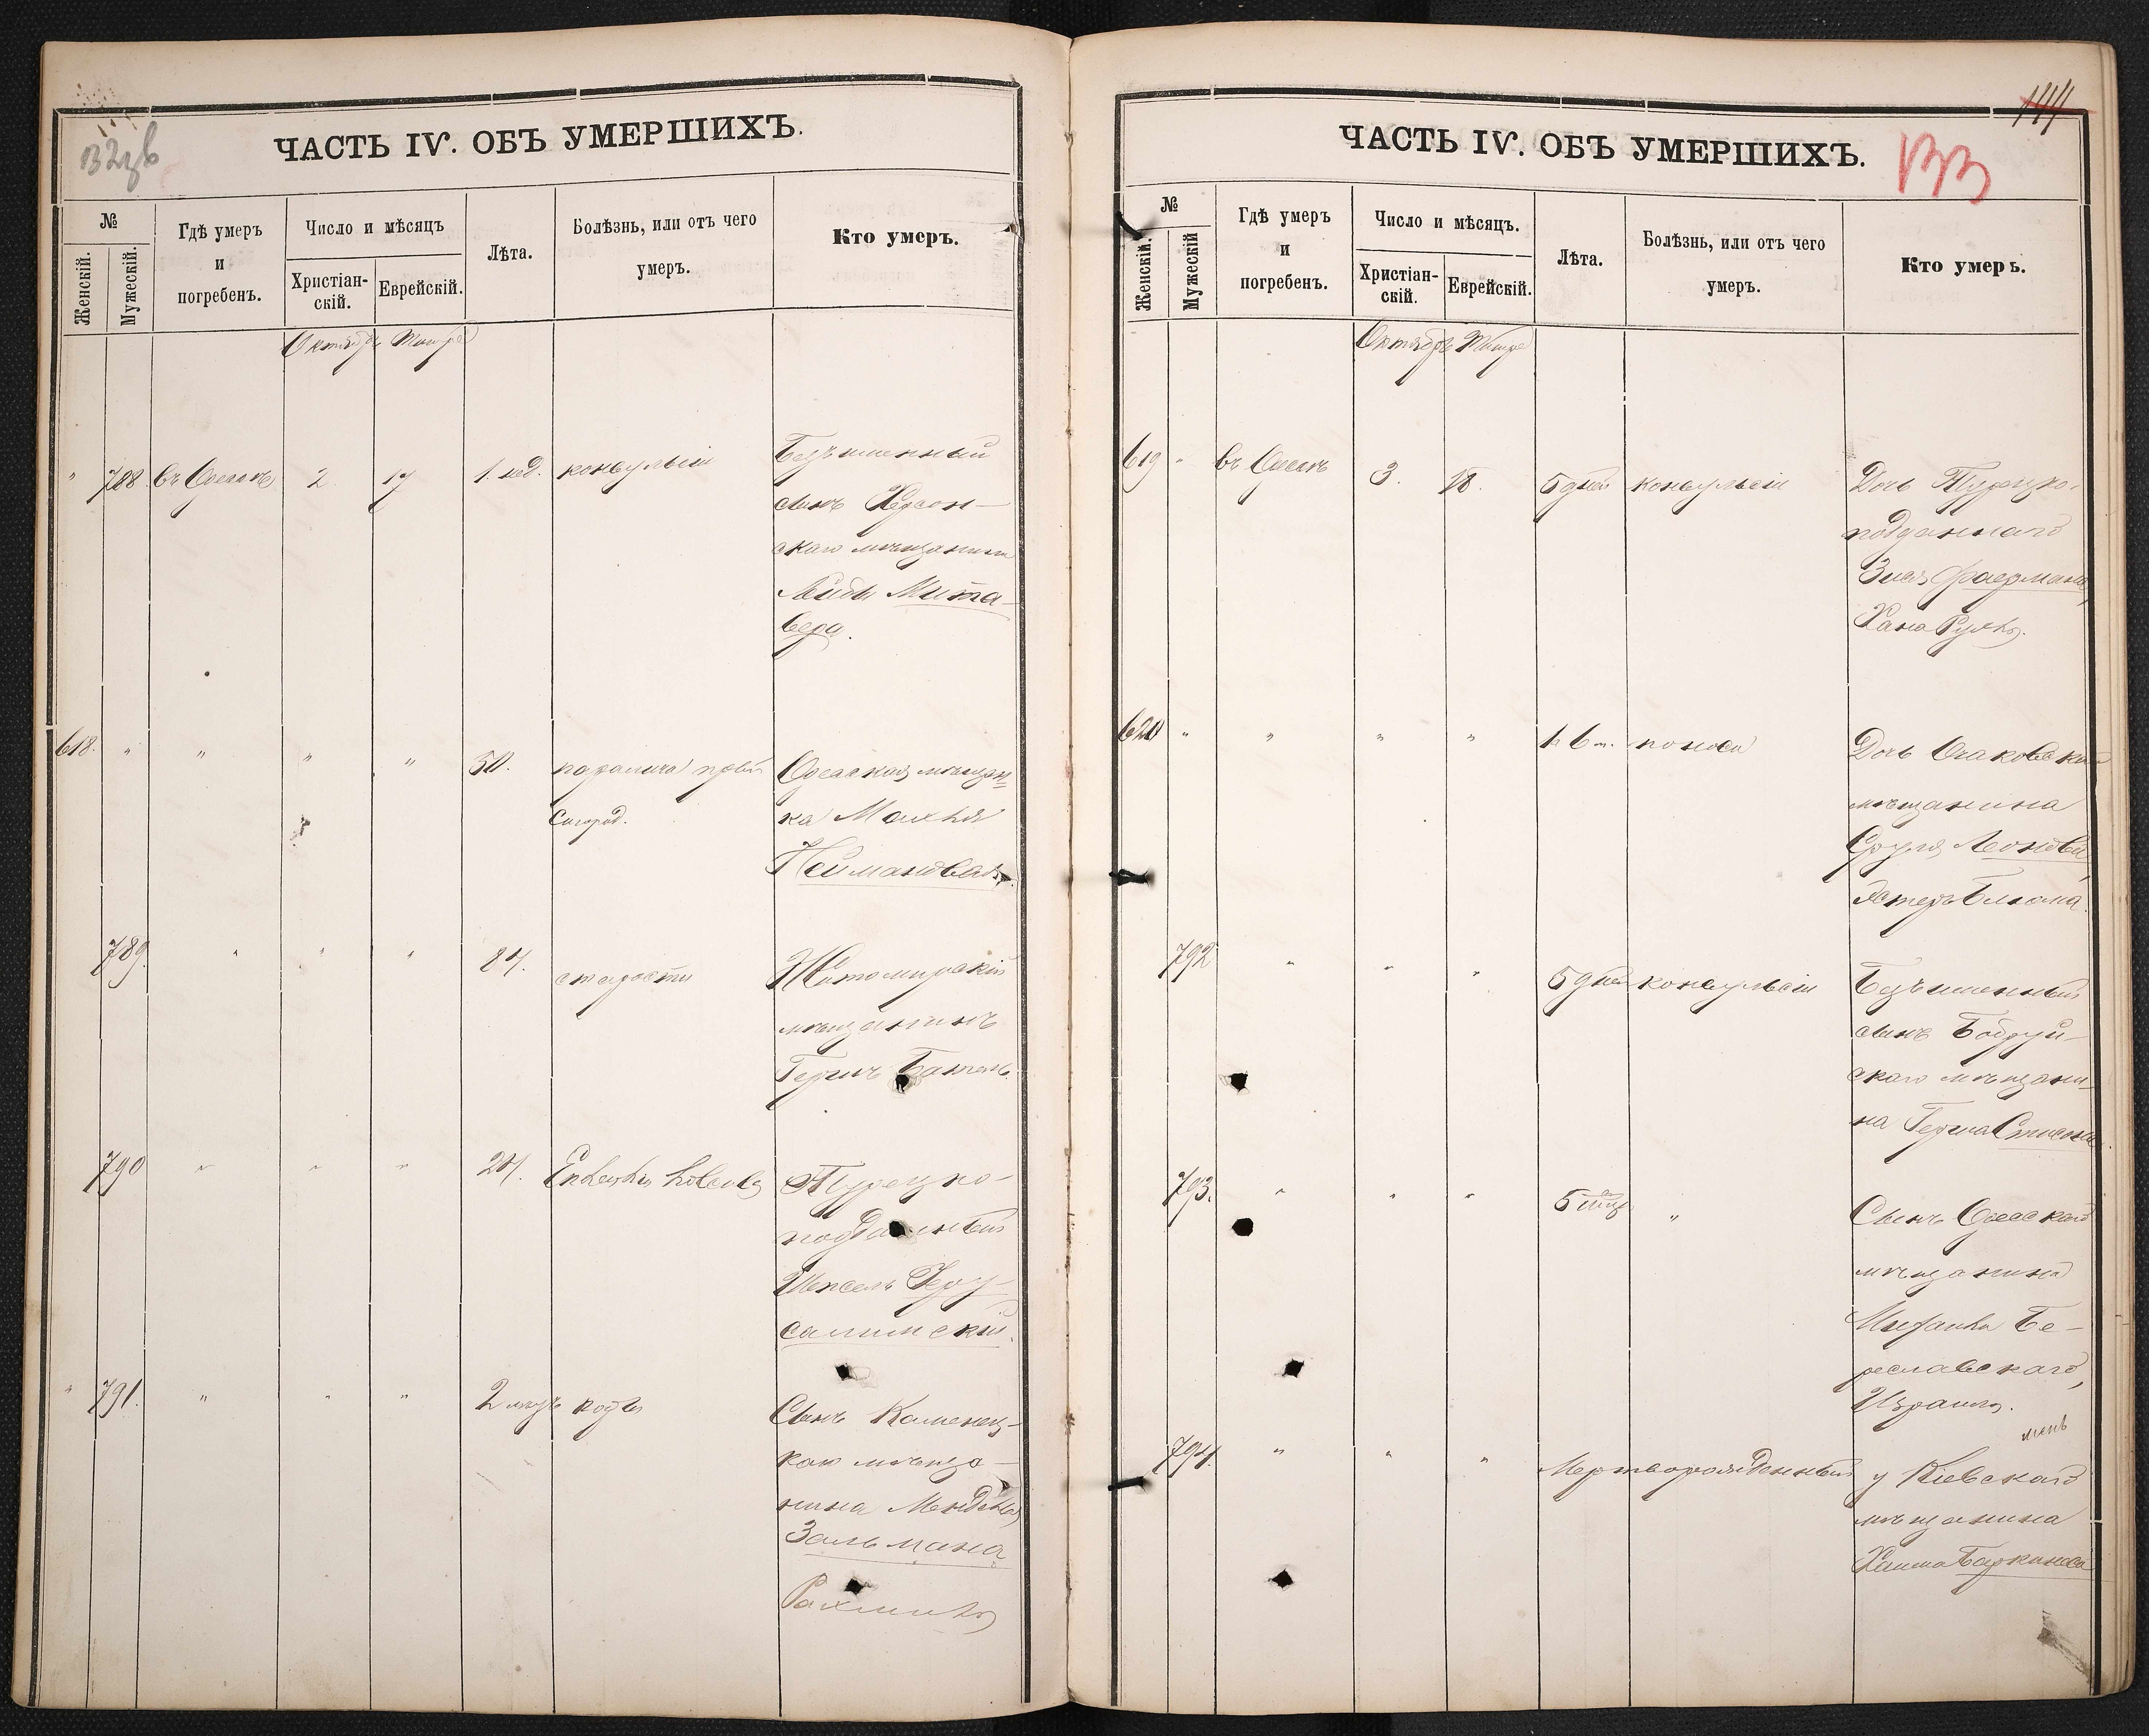 ЧАСТЬ IV. ОБЪ УМЕРШИХЪ.
№
Женскій.
Мужескій.
Гдѣ умеръ
и
погребенъ.
Число и мѣсяцъ
Христіан-
скій.
Еврейскій.
Лѣта.
Болѣзнь, или отъ чего
умеръ.
Кто умеръ.
Октябрь Тишре
" 788 въ Одессѣ 2. 17 1. нед. конвульсіи
Безъименный
сынъ Херсон-
скаго мѣщанина
Лейбы Мита-
вера.
618. " " " " 50.
Одесская мѣщан-
ка Малхья
Неймановская.
789. " " " 84. старости
Житомирскій
мѣщанинъ
Гершъ
790 " " " 24.
Турецко-
подданный
Шепсель Іеру-
салимскій.
" 791. " " " 2 корь
Сынъ Каменец-
каго мѣща-
нина Менделя
Зальмана
Рахмиль
ЧАСТЬ IV. ОБЪ УМЕРШИХЪ.
133
144
№
Женскій.
Мужескій
Гдѣ умеръ
и
погребенъ.
Число и мѣсяцъ.
Христіан-
скій.
Еврейскій.
Лѣта.
Болѣзнь, или отъ чего
умеръ.
Кто умеръ.
Октябрь Тишре
619 " въ Одессѣ 3. 18. 5 дней конвульсіи
Дочь Турецко-
подданнаго
Зися Фаермана,
Хана Рухля.
620 " " " " поноса
Дочь Очаковскаго
мѣщанина
Сруля
Эстеръ Блюма.
792 " " " 5 дней конвульсіи
Безъименный
сынъ Бобруй-
скаго мѣщани-
на Герша
793. " " " 5 "
Сынъ Одесскаго
мѣщанина
Бе-
реславскаго,
Израиль.
794. " " " Мертворожденный
у Кіевскаго
мѣщанина
Хаима Баркинова